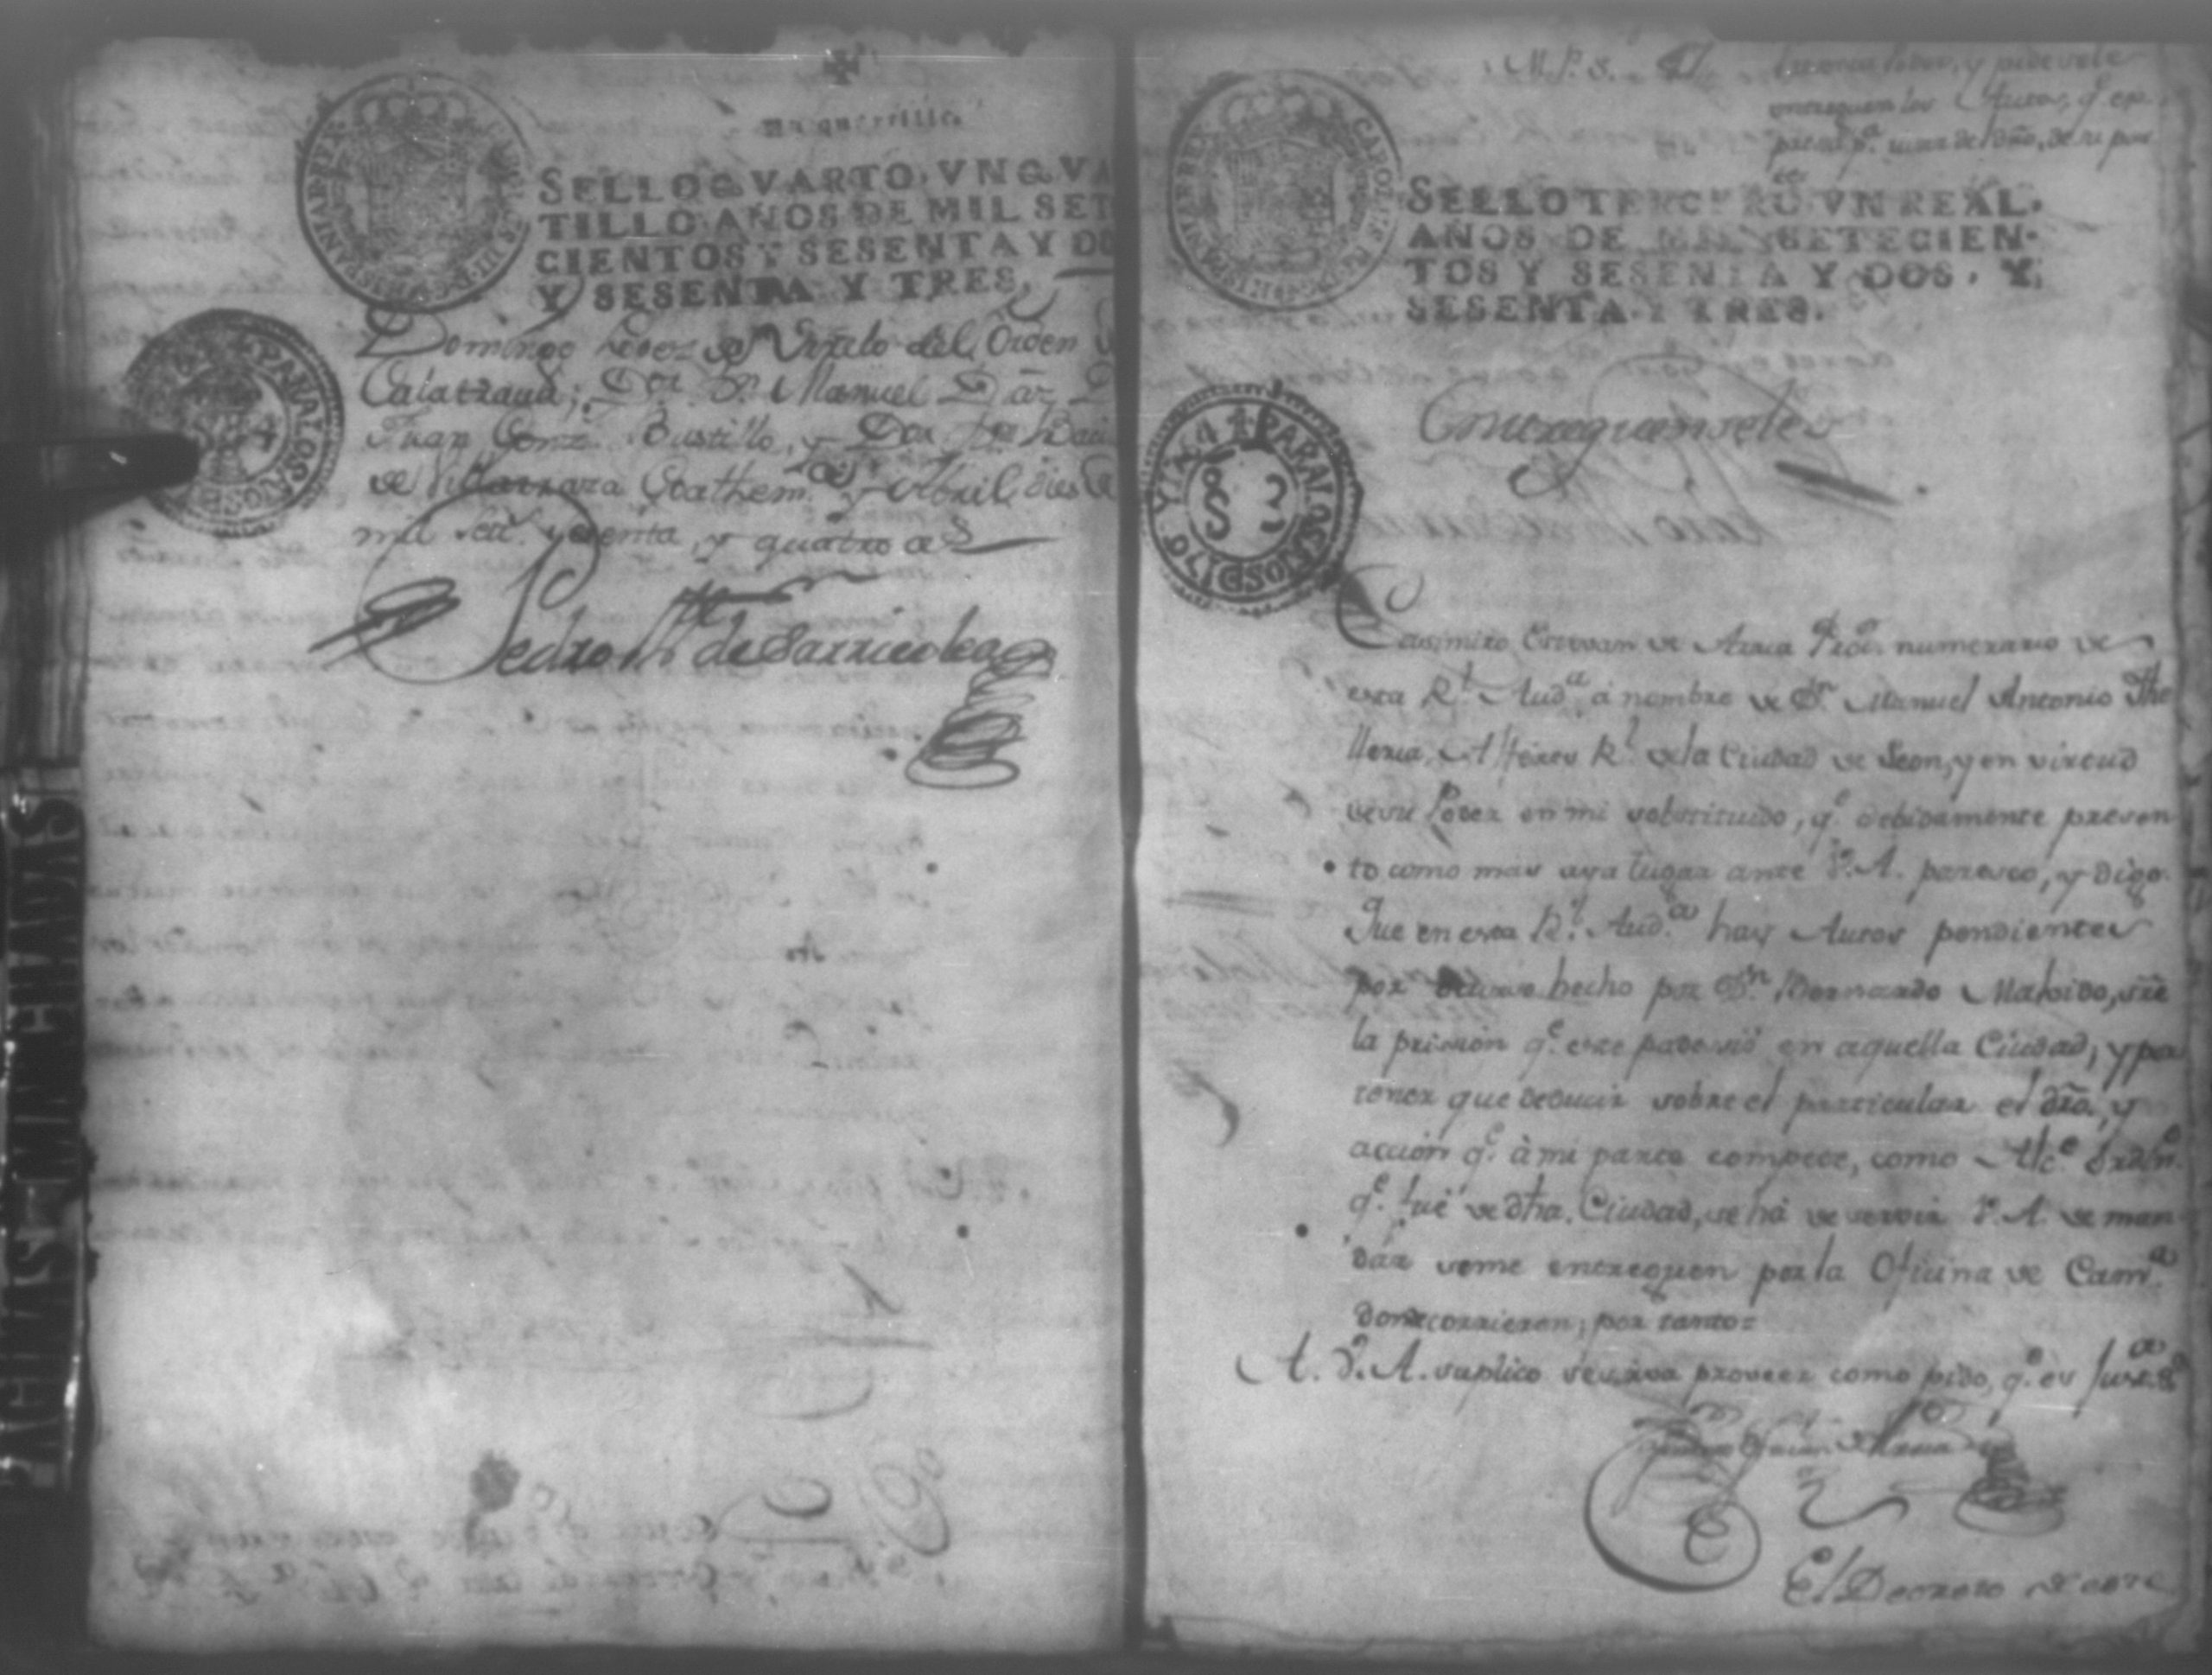 Un quartillo.
SELLO QVARTO, VN QVA
TILLO, AÑOS DE MIL SET
CIENTOS Y SESENTA Y DO
Y SESENTA Y TRES.
Domingo Lopez de Urrelo del Orden
Calatrava; Dor. Dn. Manuel Diaz
Juan Gonz. Bustillo, y Dor. Dn.
de Villarraza Guathem.a y Abril dies
mil set.s sesenta, y quatro as
Pedro de Barrieolea
M. P. S.
y pide sele
entreguen los Autos, q.e ex
presa p.a usar de dro, de su par
te
SELLO TERCERO, VN REAL,
AÑOS DE MIL SETECIEN-
TOS Y SESENTA Y DOS, Y
SESENTA Y TRES.
CAROLUS
HISPANIAR REX
PARA LOS AÑOS D 176
Y 1764
Entreguensele
Casimiro Estevan de Arria Pror. numerario de
esta Rl. Aud.a á nombre de Dn. Manuel Antonio The
lleria, Alferes Rl. de la Ciudad de Leon, y en virtud
de su Poder en mi substituido, q.e debidamente presen
to como mas aya lugar ante V. A. paresco, y digo:
Que en esta Rl. Aud.a hay Autos pendientes
por hecho por Dn. Bernardo Maloido, sre
la prision q.e este padesió en aquella Ciudad; y por
tener que deducir sobre el particular el dro, y
accion q.e à mi parte compete, como Alc.e Ordin.o
q.e fue de dha. Ciudad, se há de servir V. A. de man
dar seme entreguen por la Oficina de Cam.a
donde corrieron; por tanto=
A. V. A. suplico se sirva proveer como pido, q.e es Just.a
El Decreto de este